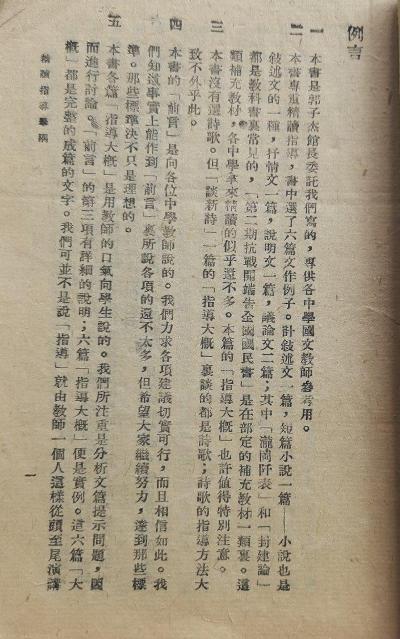 例言
一 本書是郭子杰館長委託我們寫的，專供各中學國文教師參考用。
二 本書專重精讀指導，書中選了六篇文作例子。計敍述文一篇，短篇小說一篇——小說也是
敍述文的一種，抒情文一篇，說明文一篇，議論文二篇；其中「瀧岡阡表」和「封建論」
都是教科書裏常見的，「第二期抗戰開端告全國國民書」是在部定的補充教材一類裏。這
類補充教材，各中學拿來精讀的似乎還不多。本篇的「指導大概」也許值得特別注意。
三 本書沒有選詩歌。但「談新詩」一篇的「指導大概」裏談的都是詩歌；詩歌的指導方法大
致不外乎此。
四 本書的「前言」是向各位中學教師說的。我們力求各項建議切實可行，而且相信如此。我
們知道事實上能作到「前言」裏所說各項的還不太多，但希望大家繼續努力，達到那些標
準。那些標準決不只是理想的。
五 本書各篇「指導大概」是用教師的口氣向學生說的。我們所注重是分析文篇提示問題，因
而進行討論。「前言」的第三項有詳細的說明；六篇「指導大概」便是實例。這六篇「大
概」都是完整的成篇的文字。我們可並不是說「指導」就由教師一個人這樣從頭至尾演講
精讀指導舉隅
一